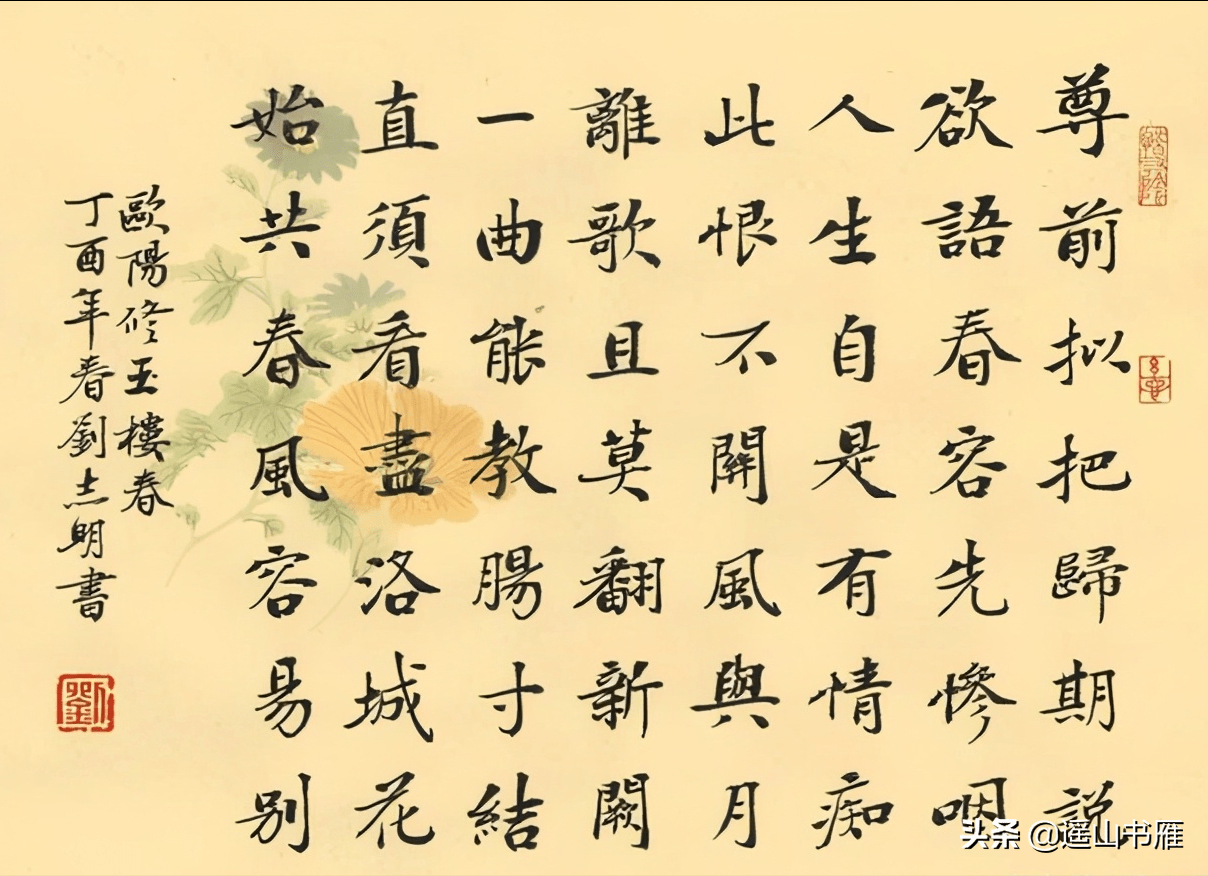 尊前拟把歸期説
欲語春容先慘咽
人生自是有情痴
此恨不關風與月
離歌且莫翻新闕
一曲能教腸寸結
直須看盡洛城花
始共春風容易別
歐陽修玉樓春
丁酉年春劉志明書
劉
头条 @遥山书雁